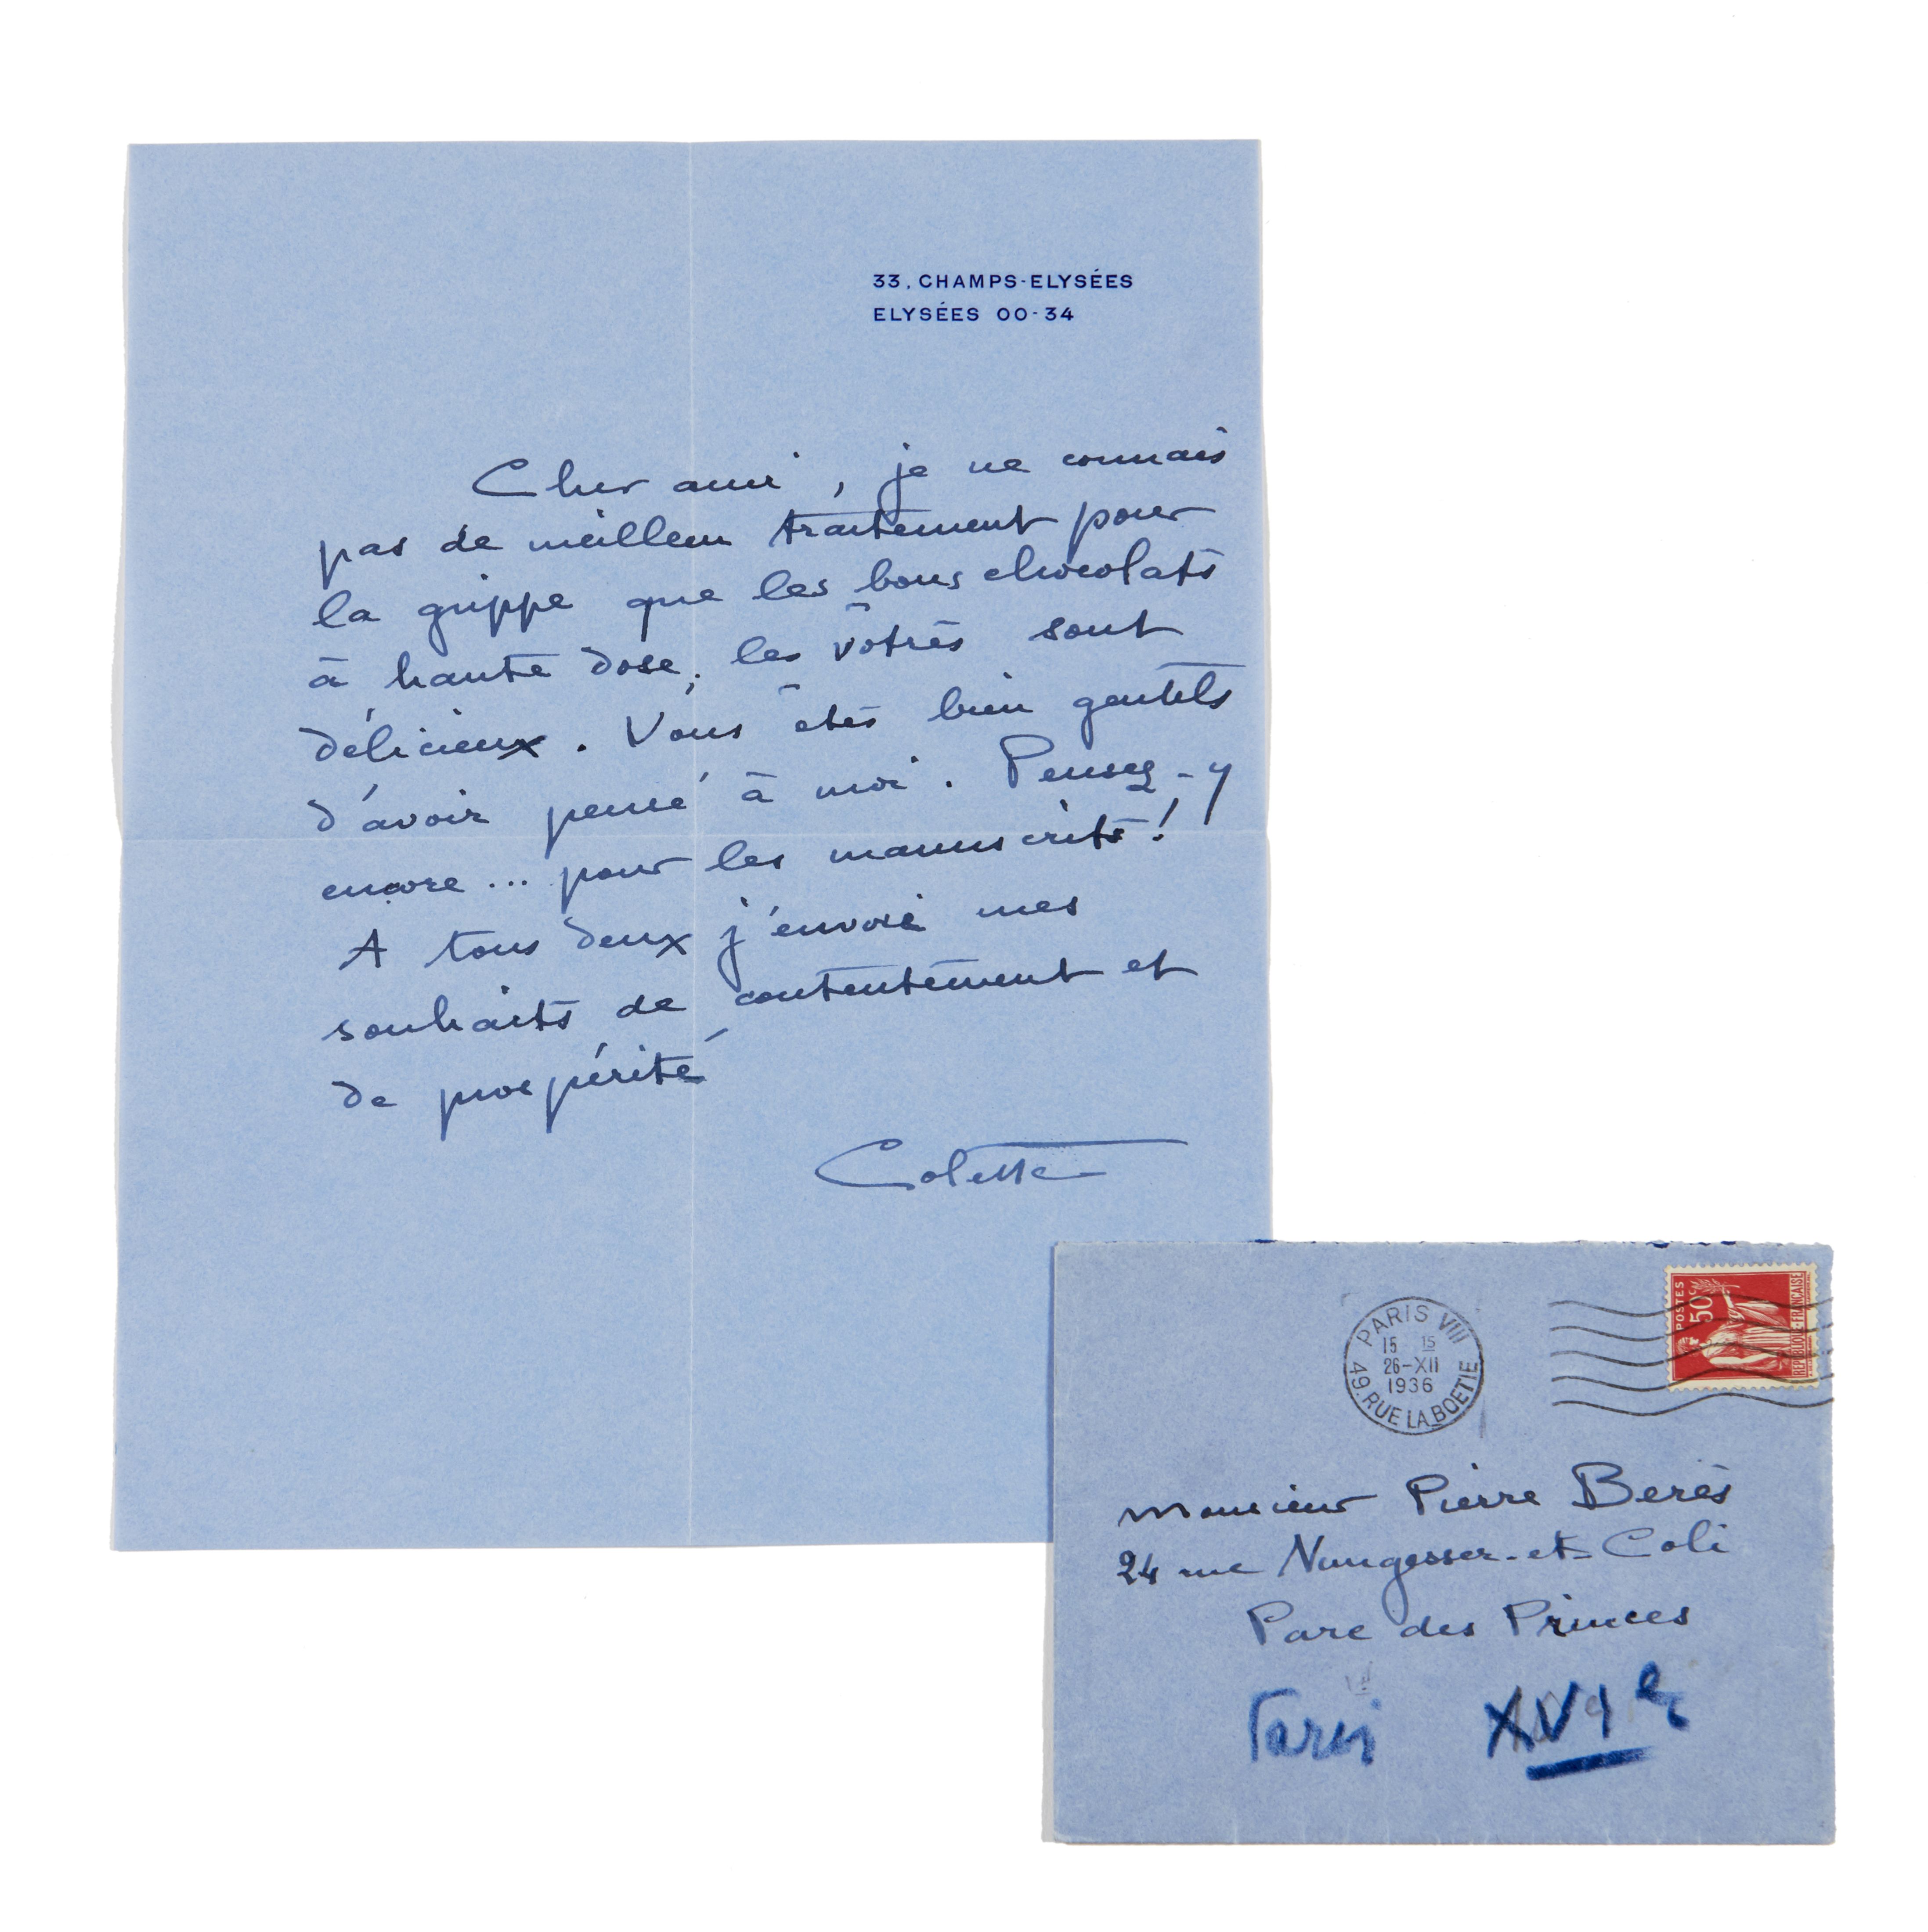 33, CHAMPS-ELYSÉES
ELYSÉES 00-34
Cher ami, je ne connais
pas de meilleur traitement pour
la grippe que les bons chocolats
à haute dose, les vôtres sont
délicieux. Vous êtes bien gentils
d'avoir pensé à moi. Pensez-y
encore... pour les manuscrits!
A tous deux j'envoie mes
souhaits de contentement et
de prospérité
Colette
PARIS VIII
15 15
26-XII
1936
49. RUE LA BOETIE
POSTES
50
REPUBLIQUE FRANÇAISE
Monsieur Pierre Berès
24 rue Nungesser-et-Coli
Parc des Princes
Paris XVIe